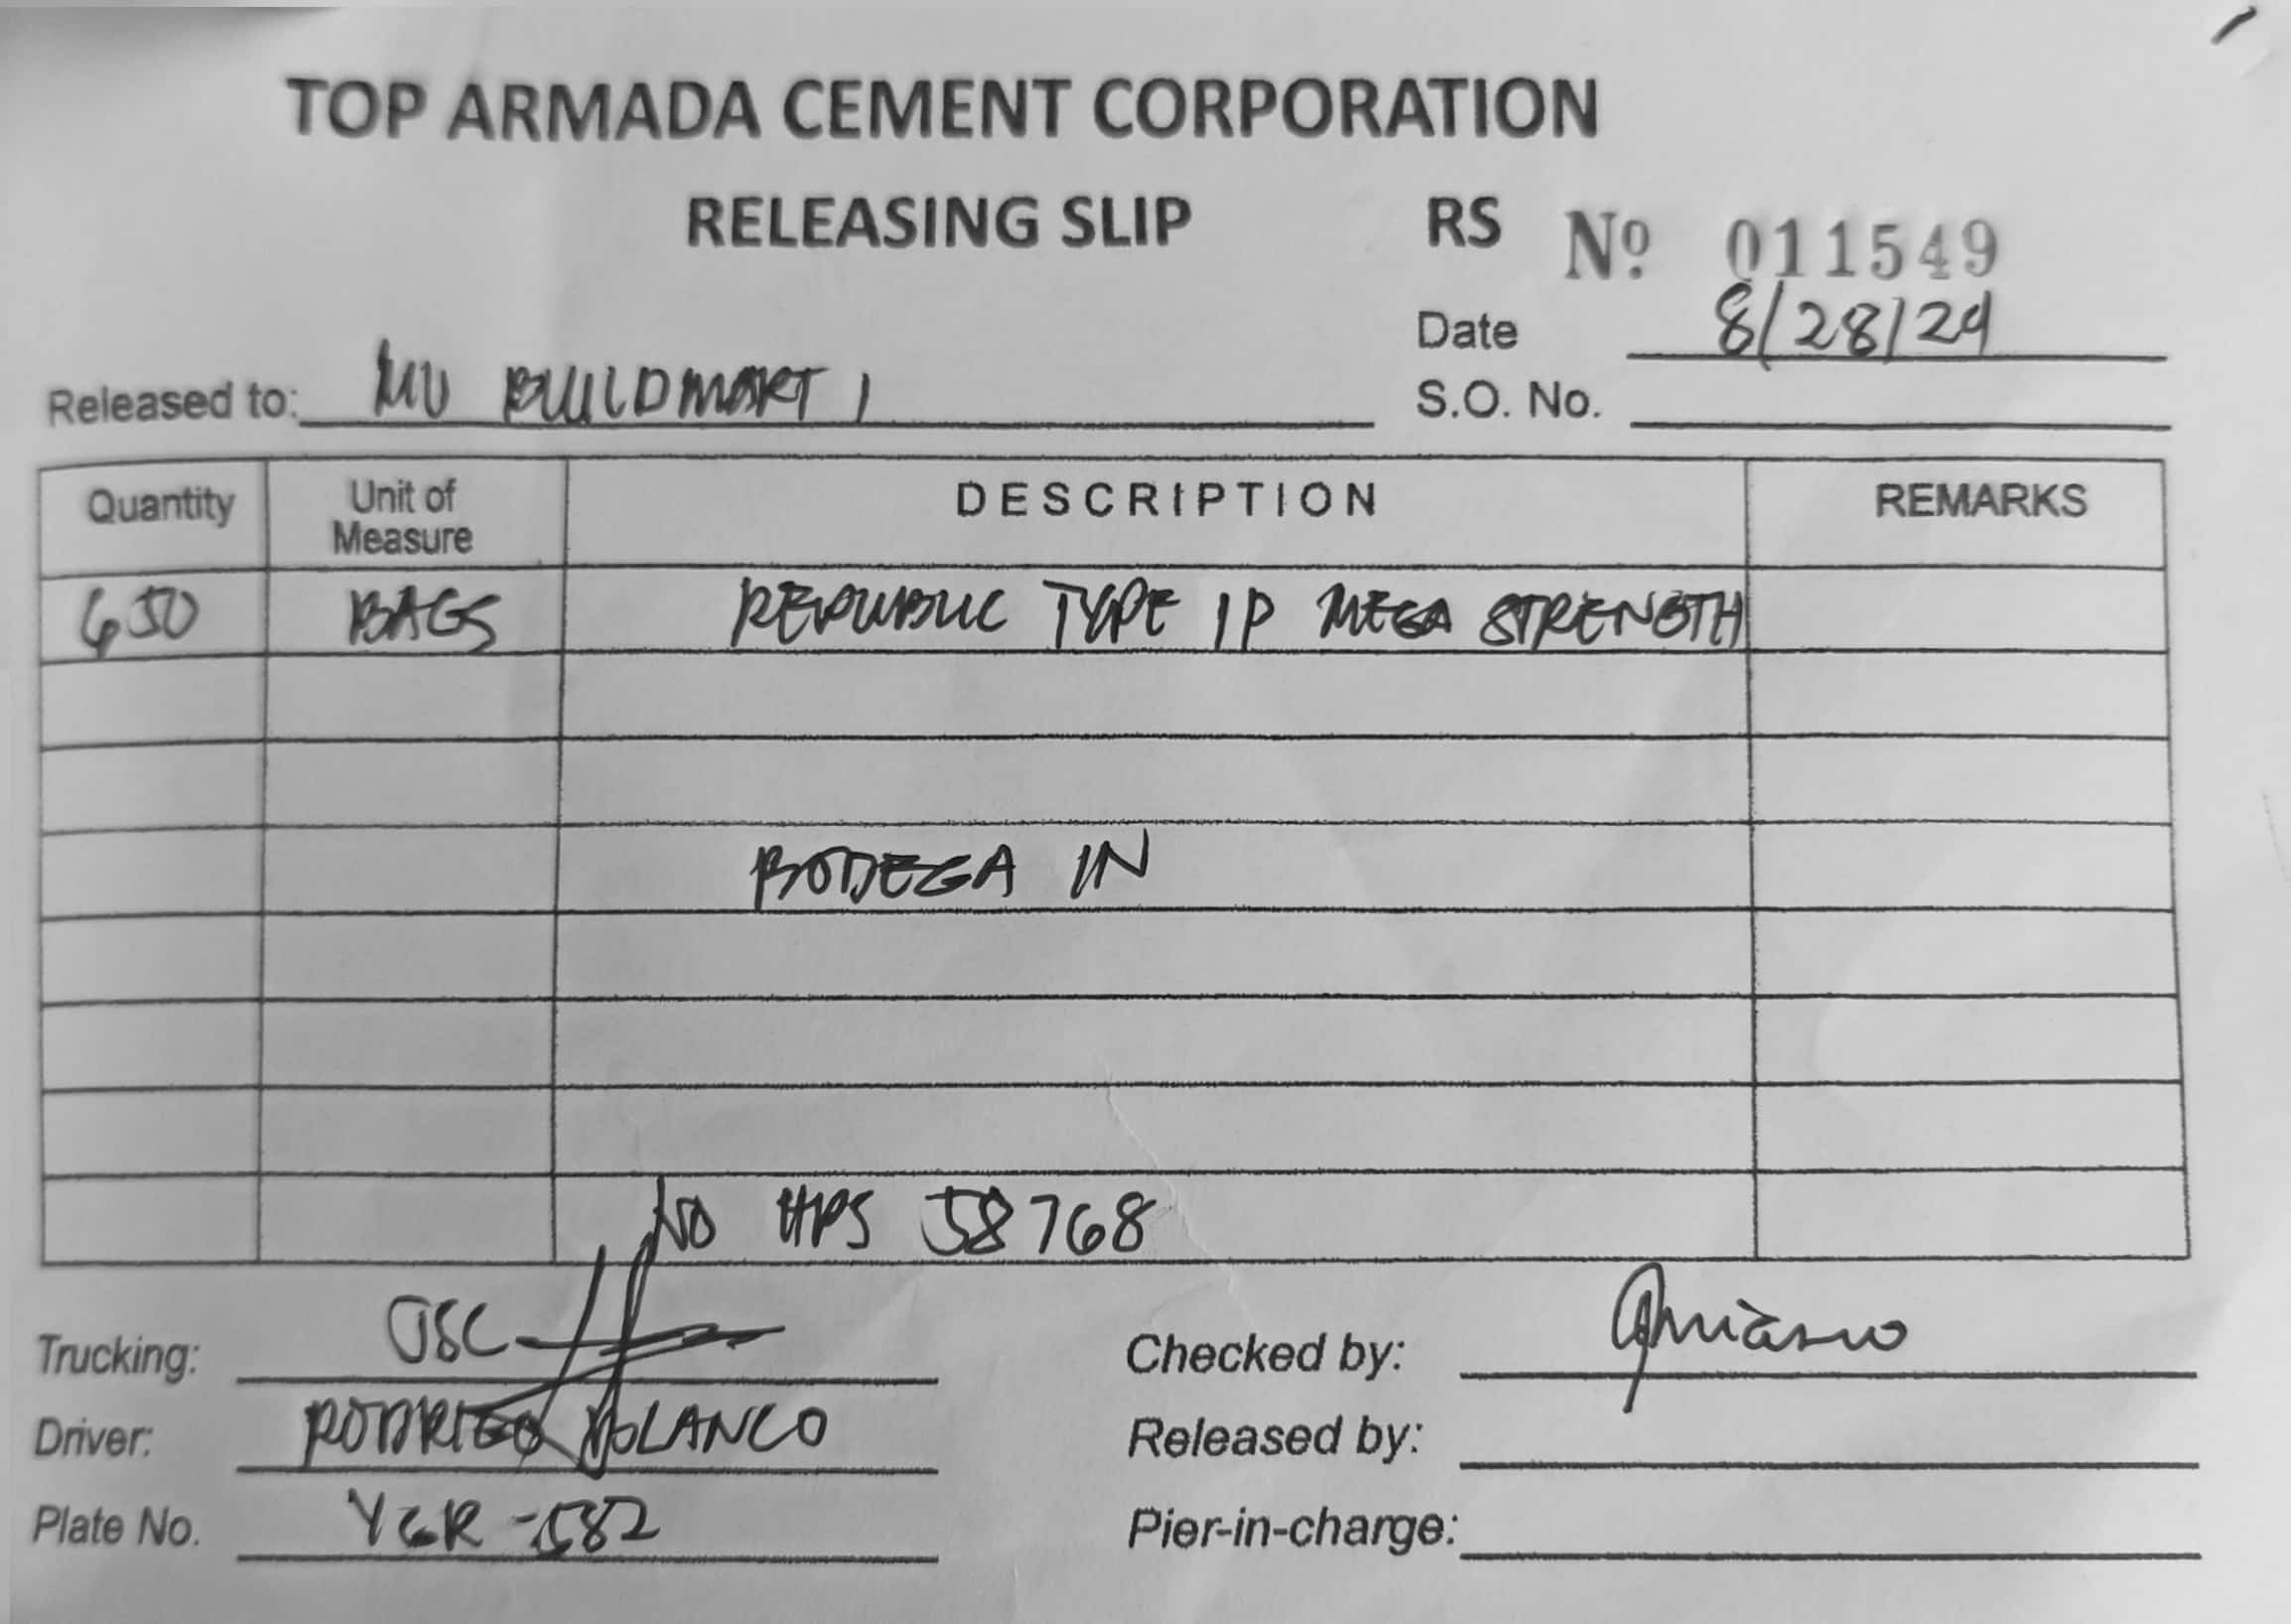 TOP ARMADA CEMENT CORPORATION
RELEASING SLIP RS Nº 011549
Date 8/28/24
Released to: MV BUILDMART 1
S.O. No.
Quantity Unit of Measure DESCRIPTION REMARKS
650 BAGS REPUBLIC TYPE 1P MEGA STRENGTH
BODEGA IN
NO HPS 58768
Trucking: JSC
Checked by:
Driver: RODRIGO MOLANCO
Released by:
Plate No. YGR-582
Pier-in-charge: